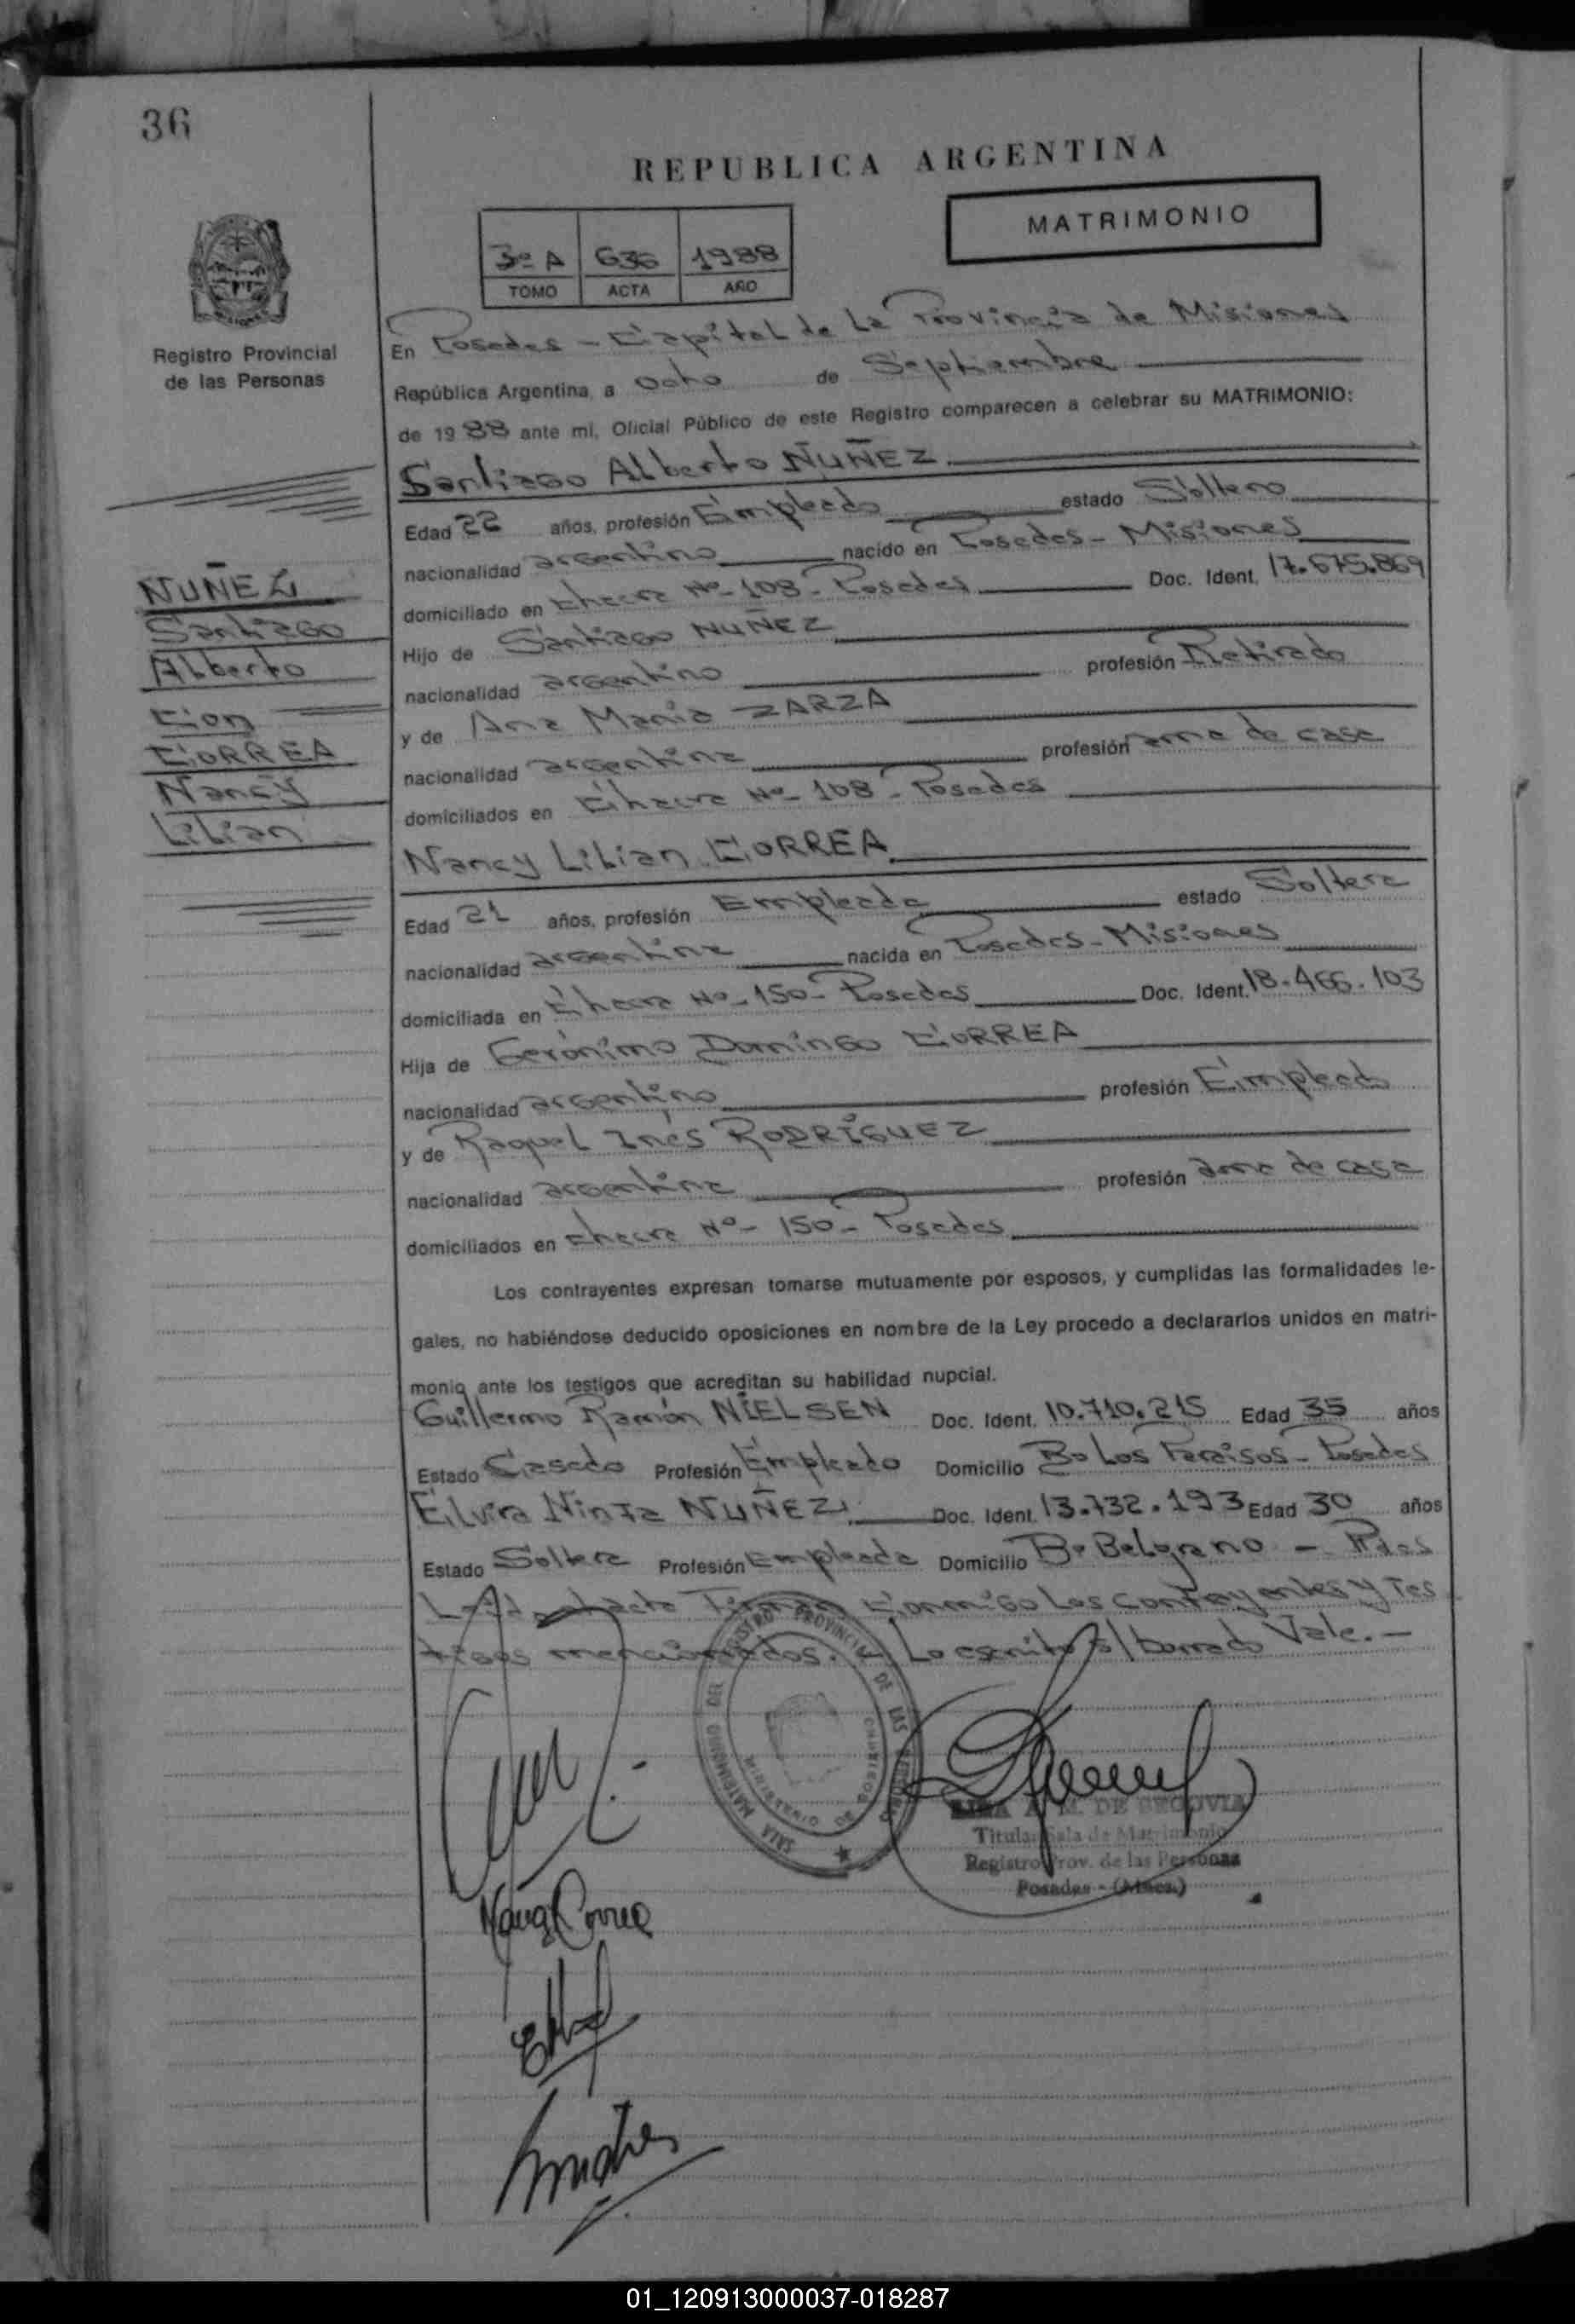 36
REPUBLICA ARGENTINA
MATRIMONIO
3º A 636 1988
TOMO ACTA AÑO
Registro Provincial
de las Personas
En Posadas - Capital de La Provincia de Misiones
República Argentina, a Ocho de Septiembre
de 1988 ante mí, Oficial Público de este Registro comparecen a celebrar su MATRIMONIO:
Santiago Alberto NUÑEZ
Edad 22 años, profesión Empleado estado Soltero
nacionalidad argentino nacido en Posadas - Misiones
domiciliado en Chacra Nº- 108 - Posadas Doc. Ident. 17.675.869
Hijo de Santiago NUÑEZ
nacionalidad argentino profesión Retirado
y de Ana María ZARZA
nacionalidad argentina profesión ama de casa
domiciliados en Chacra Nº- 108 - Posadas
NUÑEZ
Santiago
Alberto
Con
CORREA
Nancy
Lilian
Nancy Lilian CORREA
Edad 21 años, profesión Empleada estado Soltera
nacionalidad argentina nacida en Posadas - Misiones
domiciliada en Chacra Nº- 150 - Posadas Doc. Ident. 18.466.103
Hija de Gerónimo Domingo CORREA
nacionalidad argentino profesión Empleado
y de Raquel Inés RODRÍGUEZ
nacionalidad argentina profesión ama de casa
domiciliados en Chacra Nº- 150 - Posadas
Los contrayentes expresan tomarse mutuamente por esposos, y cumplidas las formalidades le-
gales, no habiéndose deducido oposiciones en nombre de la Ley procedo a declararlos unidos en matri-
monio ante los testigos que acreditan su habilidad nupcial.
Guillermo Ramón NIELSEN Doc. Ident. 10.710.215 Edad 35 años
Estado Casado Profesión Empleado Domicilio Bº Los Paraisos - Posadas
Elvira Ninfa NUÑEZ Doc. Ident. 13.732.193 Edad 30 años
Estado Soltera Profesión Empleada Domicilio Bº Belgrano - Pdas
Leída el acta Firman Conmigo Los Contrayentes y Tes
tigos mencionados. Lo escrito s/ borrado Vale. -
SALA MATRIMONIO DEL REGISTRO PROVINCIAL DE LAS PERSONAS
MINISTERIO DE GOBIERNO
A. M. DE SEGOVIA
Titular Sala de Matrimonio
Registro Prov. de las Personas
Posadas - (Mnes.)
Nancy Correa
01_120913000037-018287